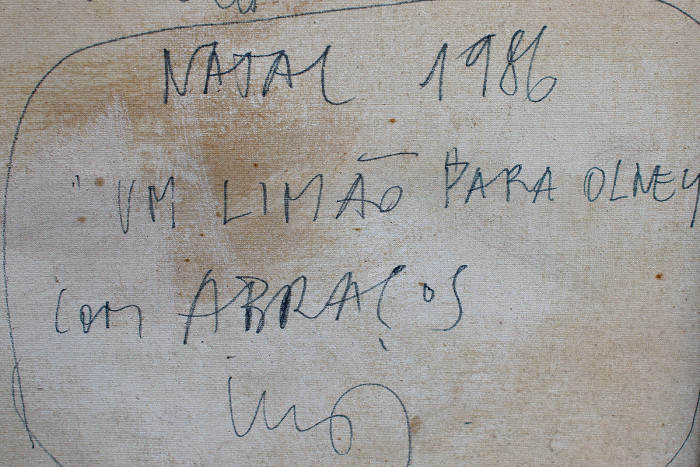 NATAL 1986
"UM LIMÃO PARA OLNEY
COM ABRAÇOS